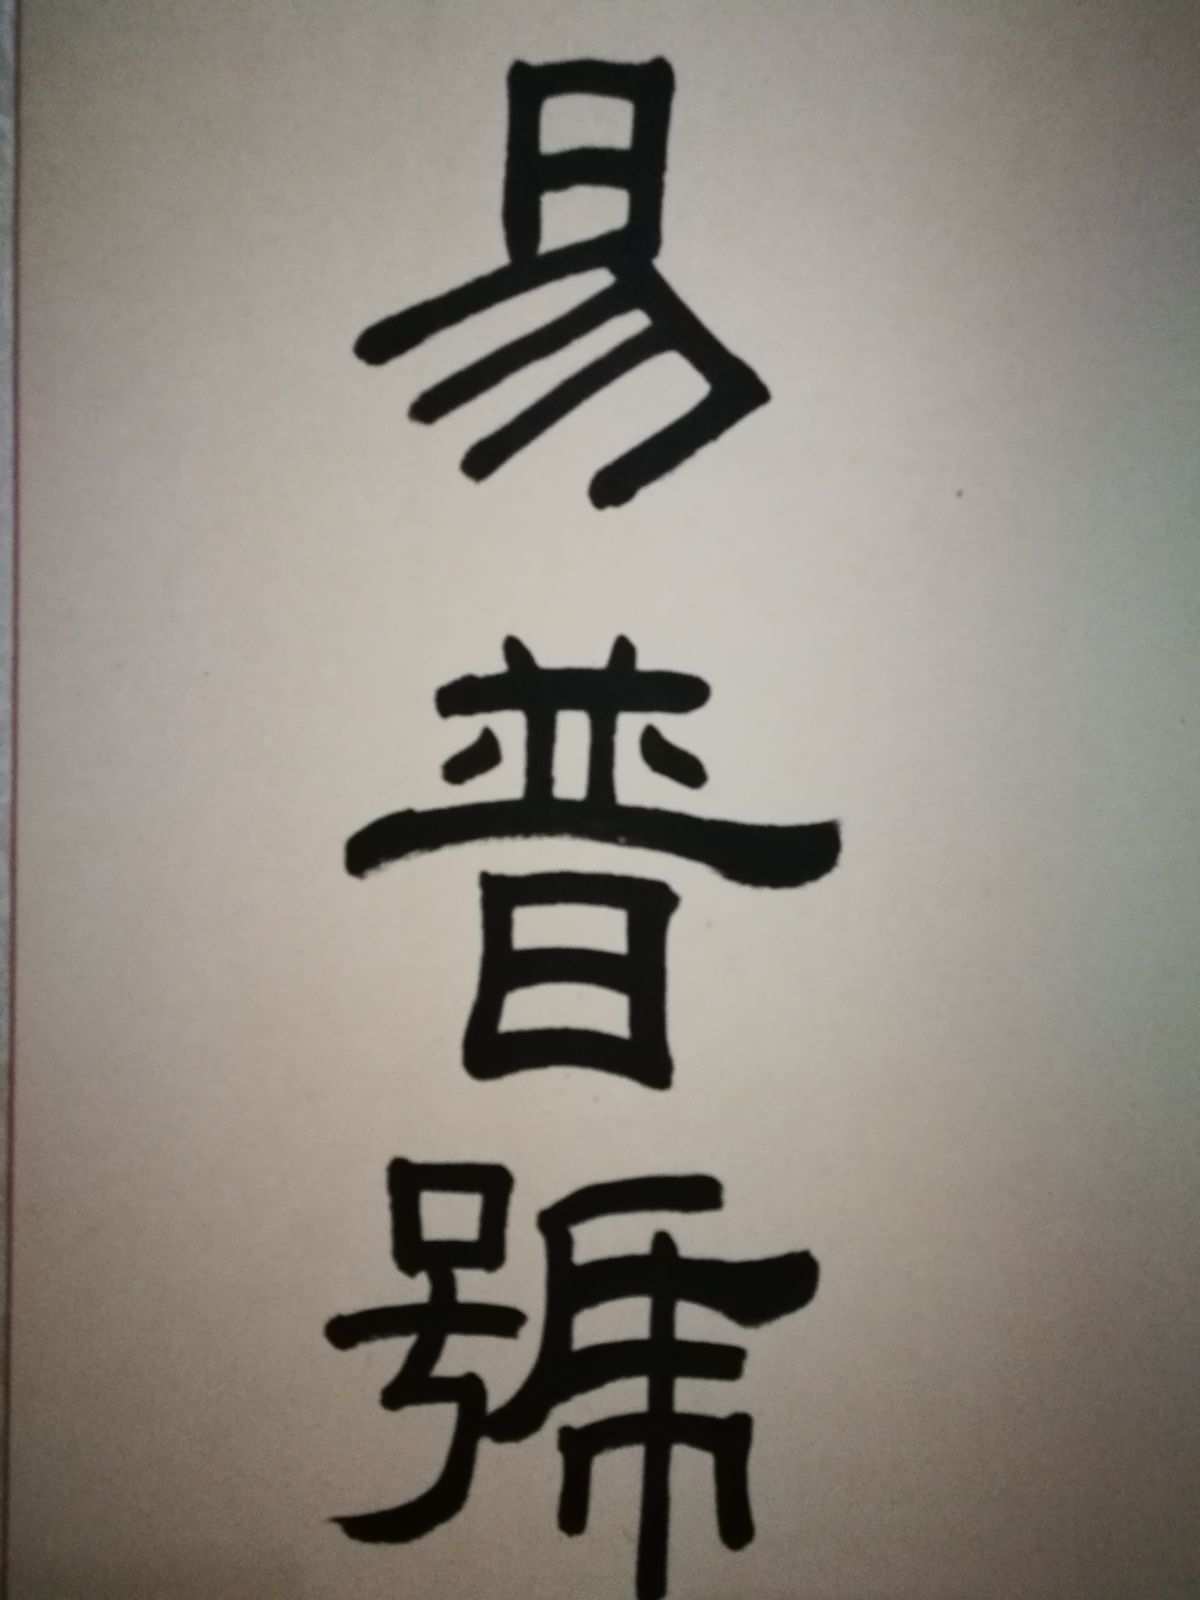 易普號